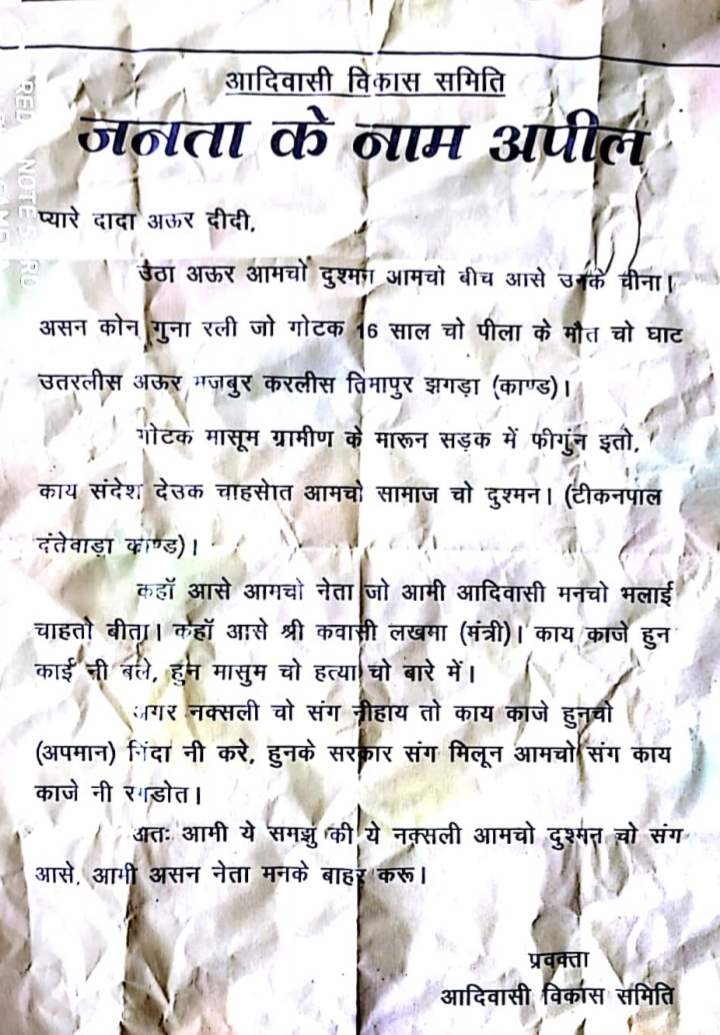 आदिवासी विकास समिति
जनता के नाम अपील
प्यारे दादा अऊर दीदी,
उठा अऊर आमचो दुश्मन आमचो बीच आसे उनके चीना।
असन कोन गुना रली जो गोटक 16 साल चो पीला के मौत चो घाट
उतरलीस अऊर मजबुर करलीस तिमापुर झगड़ा (काण्ड)।
गोटक मासूम ग्रामीण के मारून सड़क में फीगुंन इतो,
काय संदेश देउक चाहसेात आमचो सामाज चो दुश्मन। (टीकनपाल
दंतेवाड़ा काण्ड)।
कहॉ आसे आमचो नेता जो आमी आदिवासी मनचो भलाई
चाहतो बीता। कहॉ आसे श्री कवासी लखमा (मंत्री)। काय काजे हुन
काई नी बले, हुन मासुम चो हत्या चो बारे में।
अगर नक्सली चो संग नीहाय तो काय काजे हुनचो
(अपमान) निंदा नी करे, हुनके सरकार संग मिलून आमचो संग काय
काजे नी रगडोत।
अतः आमी ये समझु की ये नक्सली आमचो दुश्मन चो संग
आसे, आमी असन नेता मनके बाहर करू।
प्रवक्ता
आदिवासी विकास समिति